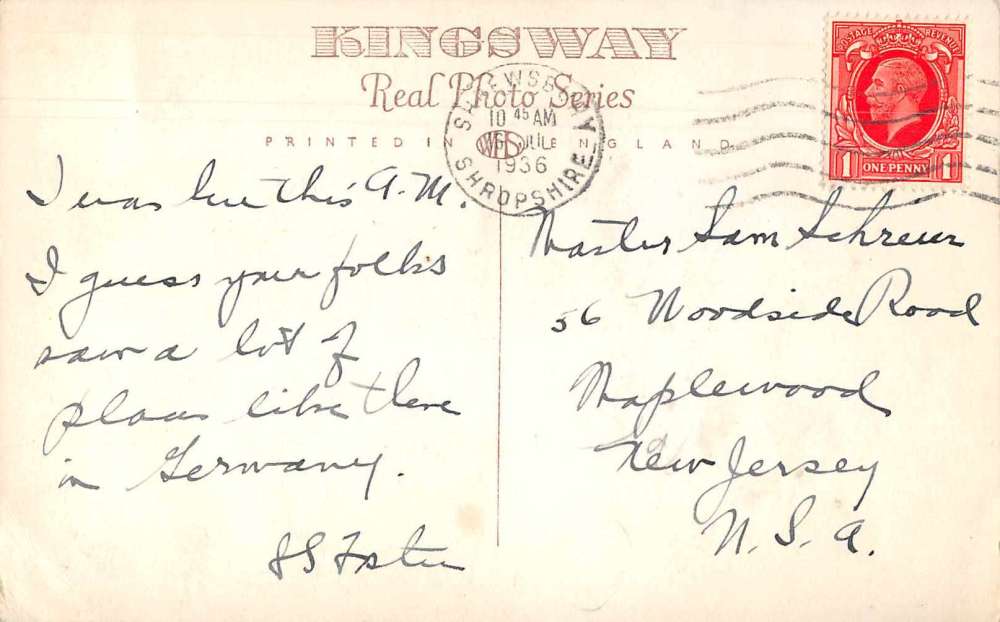 KINGSWAY
Real Photo Series
PRINTED IN ENGLAND
SHREWSBURY
10 45 AM
JUL
1936
SHROPSHIRE
WHS
POSTAGE REVENUE
1 ONE PENNY 1
I was here this A.M.
I guess your folks
saw a lot of
places like these
in Germany.
Master Sam
56 Woodside Road
Maplewood
New Jersey
U.S.A.